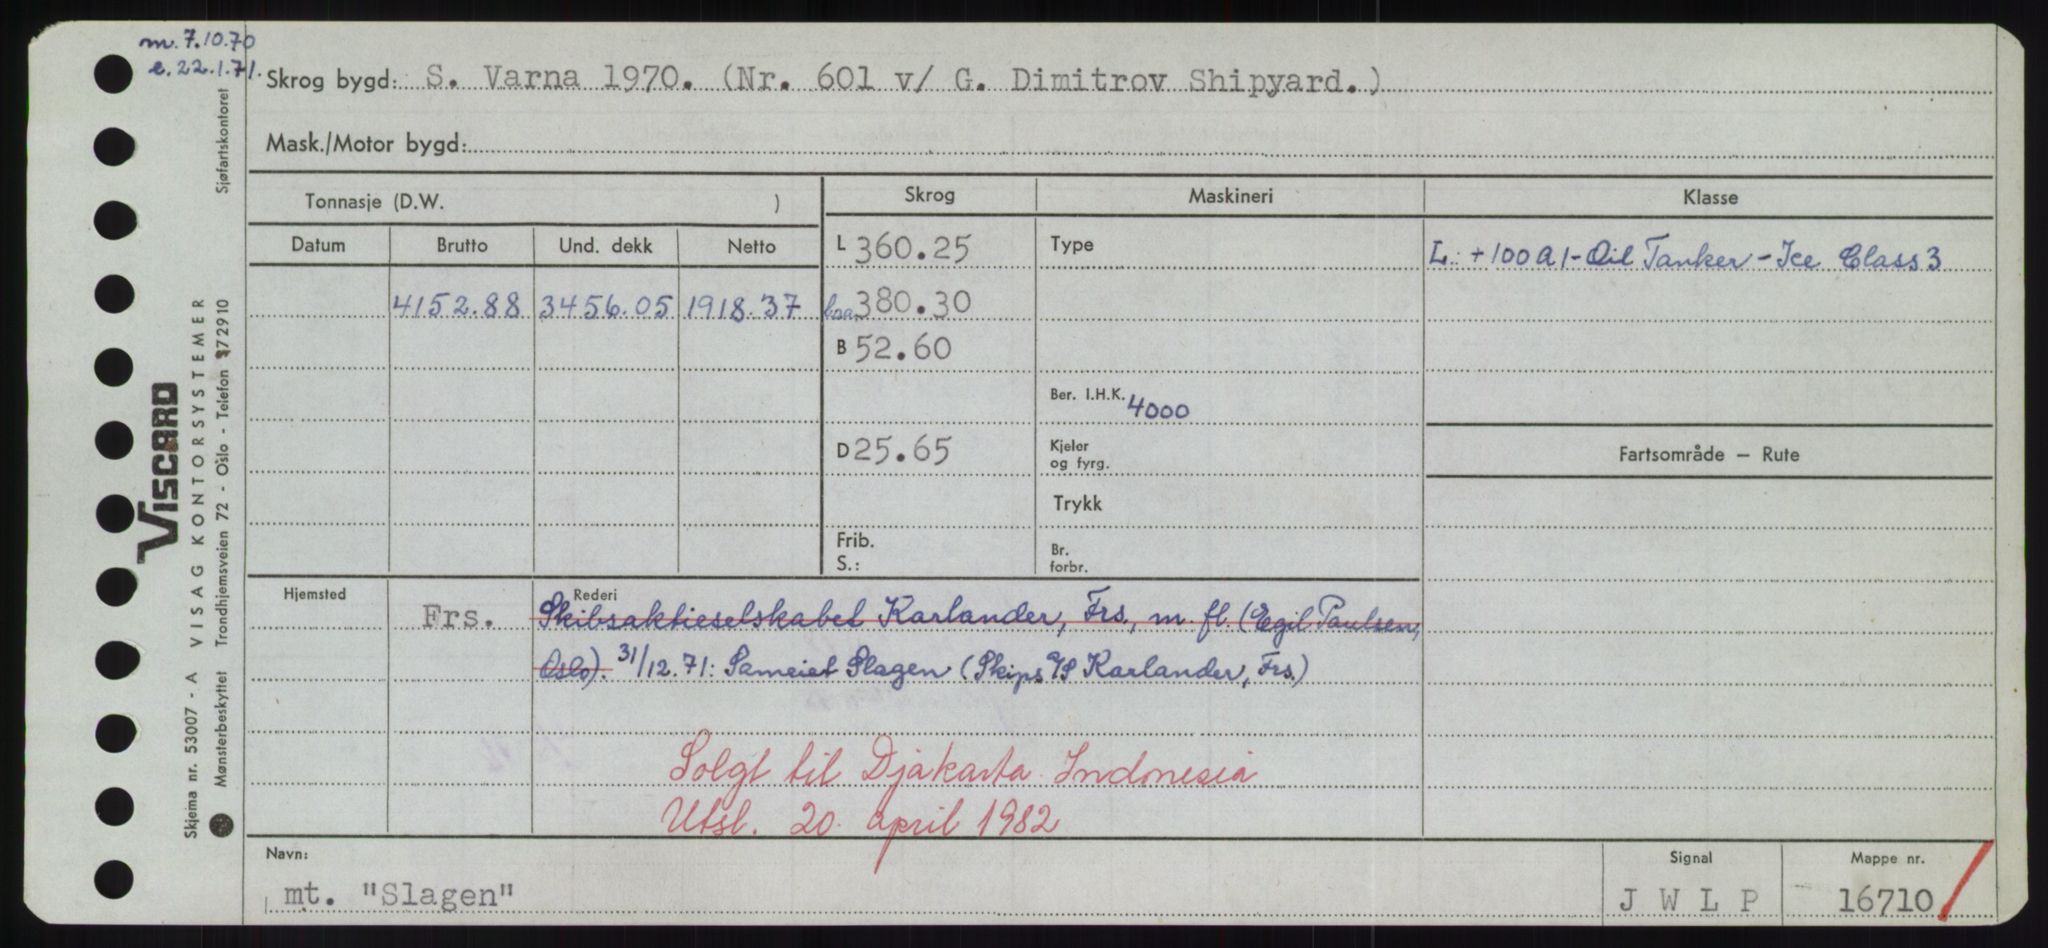 m. 7.10.70
e. 22.1.71.
Skrog bygd: S. Varna 1970. (Nr. 601 v/ G. Dimitrov Shipyard.)
Mask./Motor bygd:
Tonnasje (D.W. )
Skrog
Maskineri
Klasse
Datum Brutto Und. dekk Netto
L 360.25
Type
L: +100A1-Oil Tanker-Ice Class 3
4152.88 3456.05 1918.37
380.30
B 52.60
Ber. I.H.K. 4000
D 25.65
Kjeler
og fyrg.
Fartsområde – Rute
Trykk
Frib.
S.:
Br.
forbr.
Hjemsted
Rederi
Frs. Skibsaktieselskabet Karlander, Frs., m. fl. (Egil Paulsen,
Oslo). 31/12.71: Sameiet Slagen (Skips A/S Karlander, Frs.)
Solgt til Djakarta Indonesia
Utsl. 20. april 1982
Navn:
mt. "Slagen"
Signal
J W L P
Mappe nr.
16710
VISCARD
Skjema nr. 53007 - A VISAG KONTORSYSTEMER
Mønsterbeskyttet Trondhjemsveien 72 - Oslo - Telefon 372910 Sjøfartskontoret